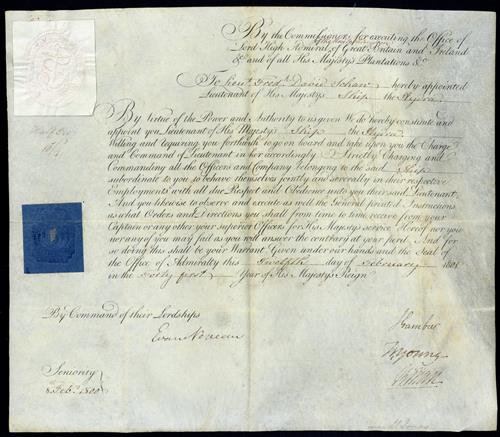 By the Commissioners for executing the Office of
Lord High Admiral of the United Kingdom of Great Britain and Ireland
&c and of all His Majesty's Plantations &c
To Lieut. Fredk. David Schaw hereby appointed
Lieutenant of His Majesty's Ship the
By Virtue of the Power and Authority to us given We do hereby constitute and
appoint you Lieutenant of His Majesty's Ship the
Willing and requiring you forthwith to go on board and take upon you the Charge
and Command of Lieutenant in her accordingly Strictly Charging and
Commanding all the Officers and Company belonging to the said Ship
subordinate to you to behave themselves jointly and severally in their respective
Employments with all due Respect and Obedience unto you their said Lieutenant
And you likewise to observe and execute as well the General printed Instructions
as what Orders and Directions you shall from time to time receive from your
Captain or any other your superior Officers for His Majesty's service Hereof nor you
nor any of you may fail as you will answer the contrary at your peril. And for
so doing this shall be your Warrant Given under our hands and the Seal of
the Office of Admiralty this Twelfth day of February 1801
in the Forty first Year of His Majesty's Reign
By Command of their Lordships
Evan Nepean
Gambier
W Young
Seniority
8 Feby. 1800